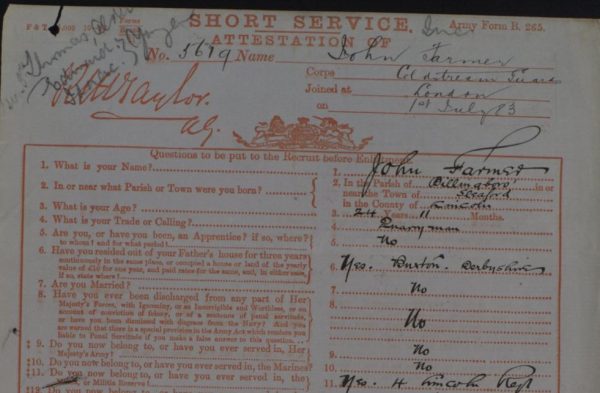 SHORT SERVICE.
Army Form B. 265.
ATTESTATION OF
No. 5679 Name John Farmer
Corps Coldstream Guards
Joined at London
on 1st July 83
Taylor.
Questions to be put to the Recruit before Enlistment.
1. What is your Name? 1. John Farmer
2. In or near what Parish or Town were you born? 2. In the Parish of Billingboro in or
near the Town of Sleaford
in the County of Lincoln
3. What is your Age? 3. 24 Years 11 Months.
4. What is your Trade or Calling? 4. Quarryman
5. Are you, or have you been, an Apprentice? if so, where? 5. No
to whom? and for what period?
6. Have you resided out of your Father's house for three years
continuously in the same place, or occupied a house or land of the yearly
value of £10 for one year, and paid rates for the same, and, in either case,
if so, state where? 6. Yes. Buxton. Derbyshire
7. Are you Married? 7. No
8. Have you ever been discharged from any part of Her 8. No
Majesty's Forces, with Ignominy, or as Incorrigible and Worthless, or on
account of conviction of felony, or of a sentence of penal servitude,
or have you been dismissed with disgrace from the Navy? And you
are warned that there is a special provision in the Army Act which renders you
liable to Penal Servitude if you make a false answer to this question.
‡ 9. Do you now belong to, or have you ever served in, Her 9. No
Majesty's Army?
‡10. Do you now belong to, or have you ever served in, the Marines? 10. No
‡11. Do you now belong to, or have you ever served in, the 11. Yes. 4 Lincoln Regt
or Militia Reserve?